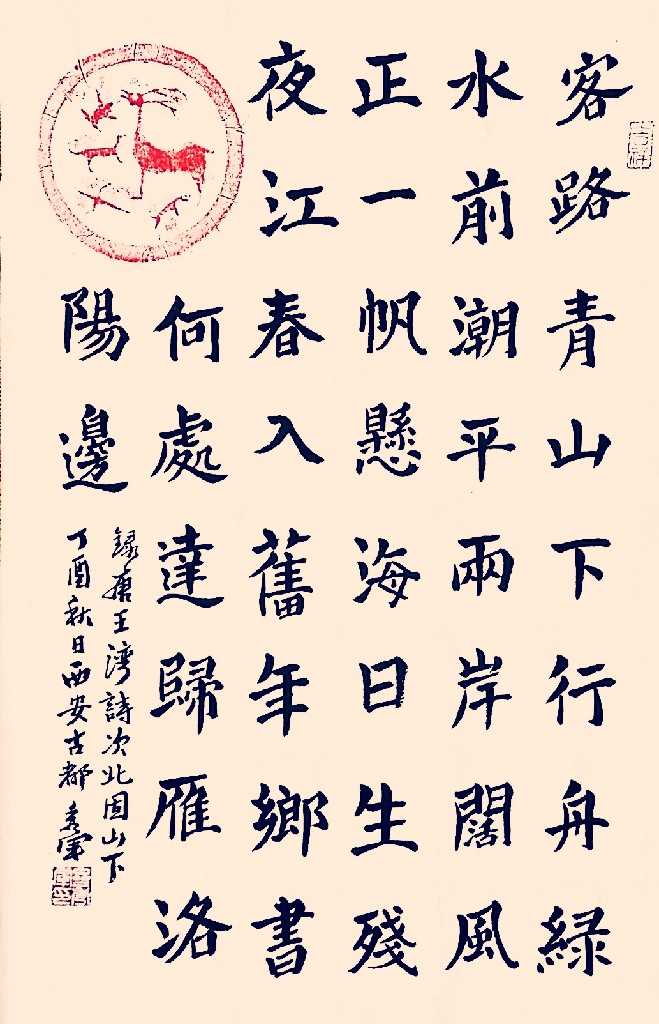 客路青山下行舟緑
水前潮平兩岸闊風
正一帆懸海日生殘
夜江春入舊年鄉書
何處達歸雁洛
陽邊
録唐王湾詩次北固山下
丁酉秋日西安古都